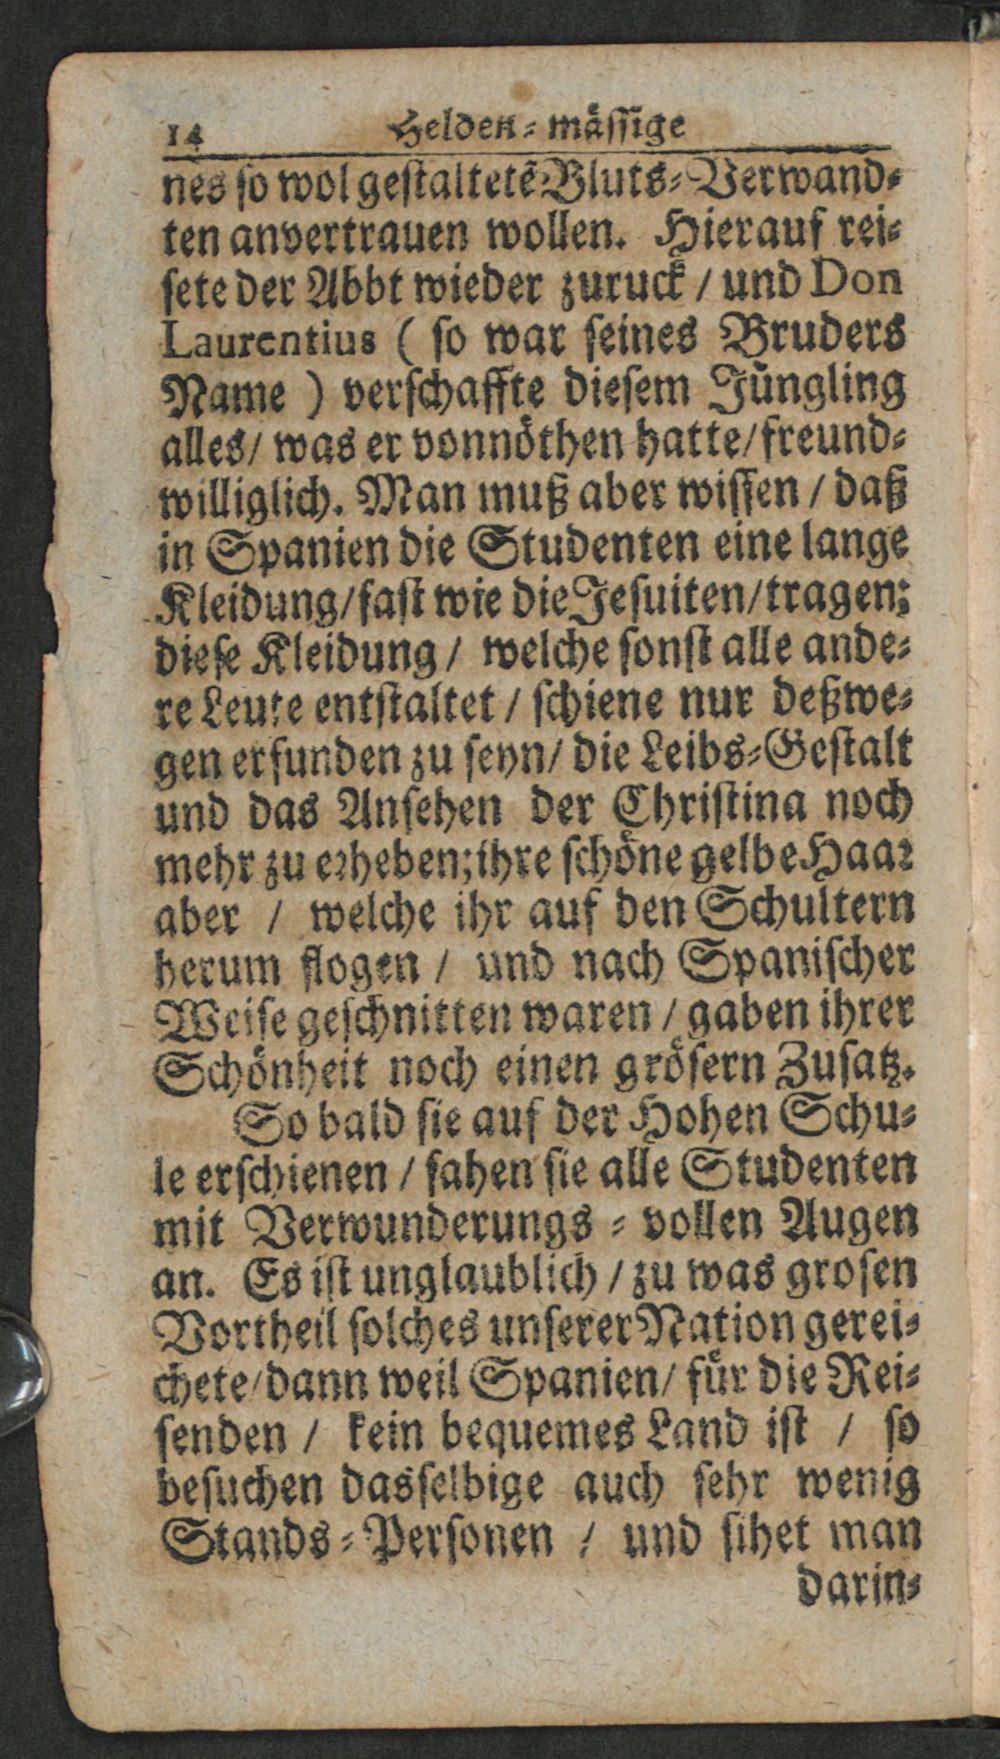 14 Helden-mässige
nes so wol gestaltetẽ Bluts-Verwand-
ten anvertrauen wollen. Hierauf rei-
sete der Abbt wieder zuruck / und Don
Laurentius ( so war seines Bruders
Name ) verschaffte diesem Jüngling
alles / was er vonnöthen hatte / freund-
williglich. Man muß aber wissen / daß
in Spanien die Studenten eine lange
Kleidung / fast wie die Jesuiten / tragen;
diese Kleidung / welche sonst alle ande-
re Leute entstaltet / schiene nur deßwe-
gen erfunden zu seyn / die Leibs-Gestalt
und das Ansehen der Christina noch
mehr zu erheben; ihre schöne gelbe Haar
aber / welche ihr auf den Schultern
herum flogen / und nach Spanischer
Weise geschnitten waren / gaben ihrer
Schönheit noch einen grösern Zusatz.
So bald sie auf der Hohen Schu-
le erschienen / sahen sie alle Studenten
mit Verwunderungs - vollen Augen
an. Es ist unglaublich / zu was grosen
Vortheil solches unserer Nation gerei-
chete / dann weil Spanien / für die Rei-
senden / kein bequemes Land ist / so
besuchen dasselbige auch sehr wenig
Stands-Personen / und sihet man
darin-